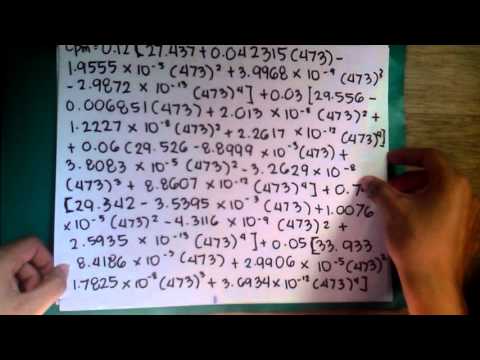 Cpm = 0.12 [27.437 + 0.042315 (473) -
1.9555 × 10⁻⁵ (473)² + 3.9968 × 10⁻⁹ (473)³
- 2.9872 × 10⁻¹³ (473)⁴] + 0.03 [29.556 -
0.006851 (473) + 2.013 × 10⁻⁸ (473)² +
1.2227 × 10⁻⁸ (473)³ + 2.2617 × 10⁻¹² (473)⁴]
+ 0.06 (29.526 - 8.8999 × 10⁻³ (473) +
3.8083 × 10⁻⁵ (473)² - 3.2629 × 10⁻⁸
(473)³ + 8.8607 × 10⁻¹² (473)⁴] + 0.7
[29.342 - 3.5395 × 10⁻³ (473) + 1.0076
× 10⁻⁵ (473)² - 4.3116 × 10⁻⁹ (473)² +
2.5935 × 10⁻¹³ (473)⁴] + 0.05 [33.933
8.4186 × 10⁻³ (473) + 2.9906 × 10⁻⁵ (473)²
1.7825 × 10⁻⁸ (473)³ + 3.6934 × 10⁻¹² (473)⁴]